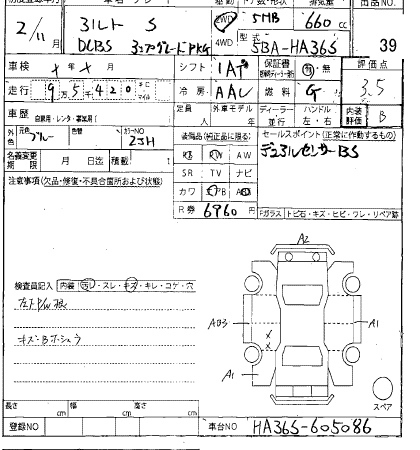 初度登録年月 車名 グレード 駆動 ドア数・形状 排気量 出品NO
2/11月 アルト S 2WD 5HB 660cc
DCBS コアグレードPKG 4WD 型式 5BA-HA36S 39
車検 × 年 × 月 シフト IAT 保証書 有・無 評価点
走行 9万5千420 キロ マイル 冷房 AAC 燃料 G 3.5
車歴 自家用・レンタ・事業用( ) 定員 人 外車モデル 年 ディーラー 並行 ハンドル 左・右 内装評価 B
外色 元色 ブルー 色替 カラーNO ZJH 装備品(純正品に限る) セールスポイント(正常に作動するもの)
名義変更期限 月 日迄 積載 t PS PW AW デュアルセンサーBS
注意事項(欠品・修復・不具合箇所および状態) SR TV ナビ
カワ エアB
R券 6960円 Fガラス トビ石・キズ・ヒビ・ワレ・リペア跡
A2
検査員記入 内装 汚・スレ・キズ・キレ・コゲ・穴
A1
A1
スペア
長さ cm 幅 cm 高さ cm
登録NO 車台NO HA36S-605086